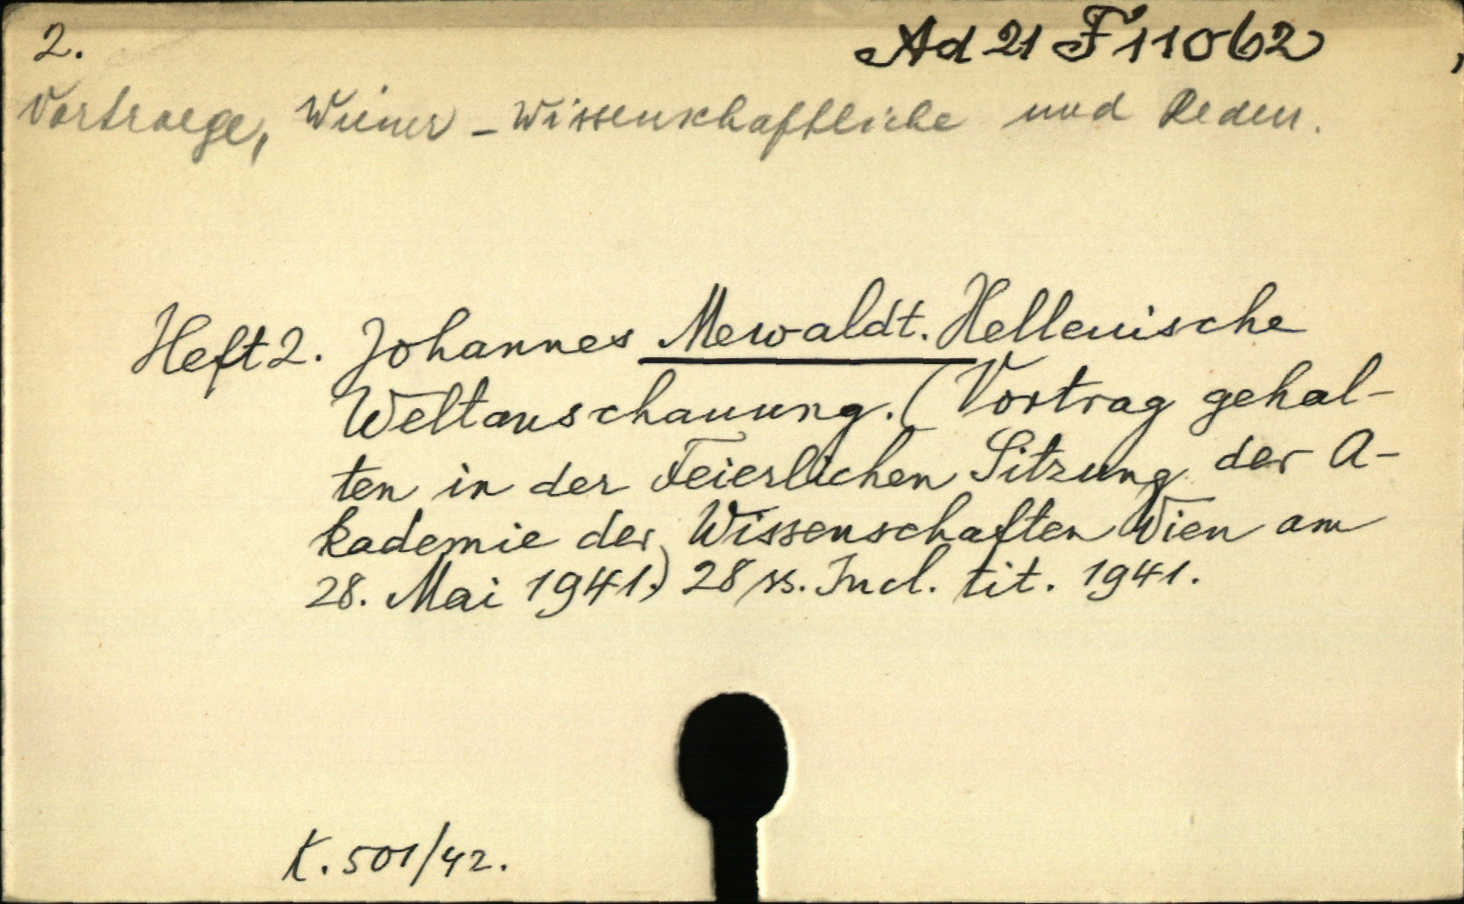 2. Ad 21 F 11062
Vortraege, Wiener - Wissenschaftliche und Reden.
Heft 2. Johannes Mewaldt. Hellenische
Weltanschauung. (Vortrag gehal-
ten in der Feierlichen Sitzung der A-
kademie der Wissenschaften Wien am
28. Mai 1941.) 28 ss. Incl. tit. 1941.
K. 501/42.